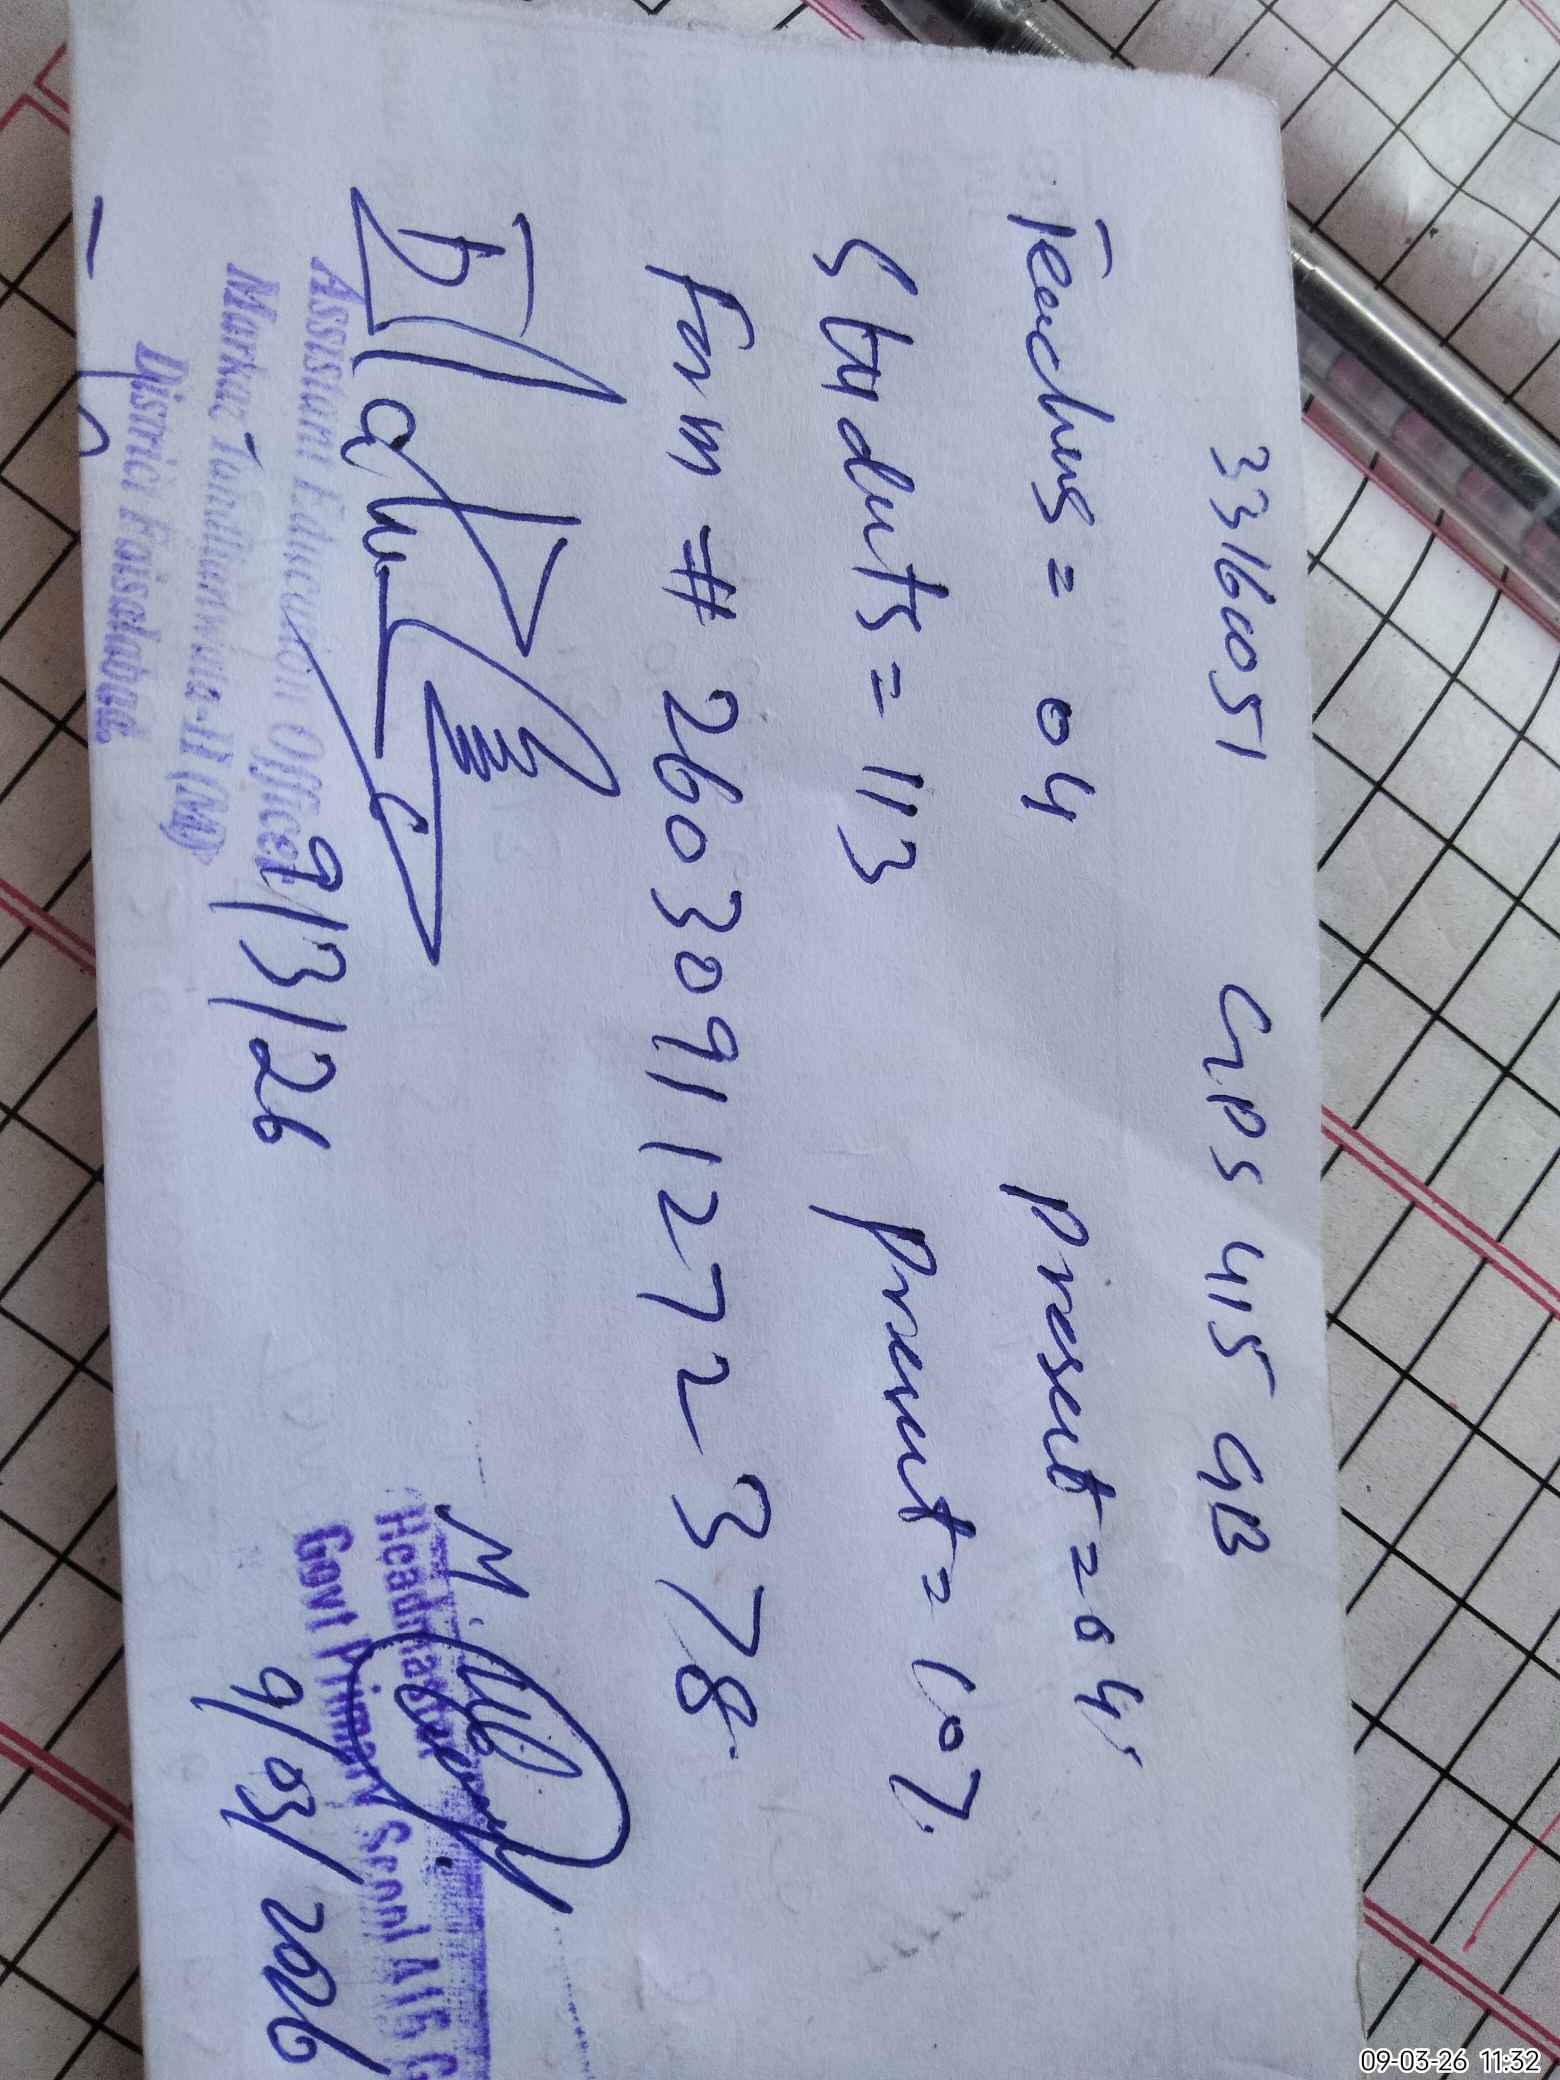 33160051 GPS 415 GB
Teachers = 04 present = 04
Students = 113 present = 107.
Form # 2603091127 2378.
Assistant Education Officer
Markaz Tandlianwala-II (M)
District Faisalabad
9/3/26
M.
Headmaster
Govt Primary School 415 G
9/03/2026
09-03-26 11:32